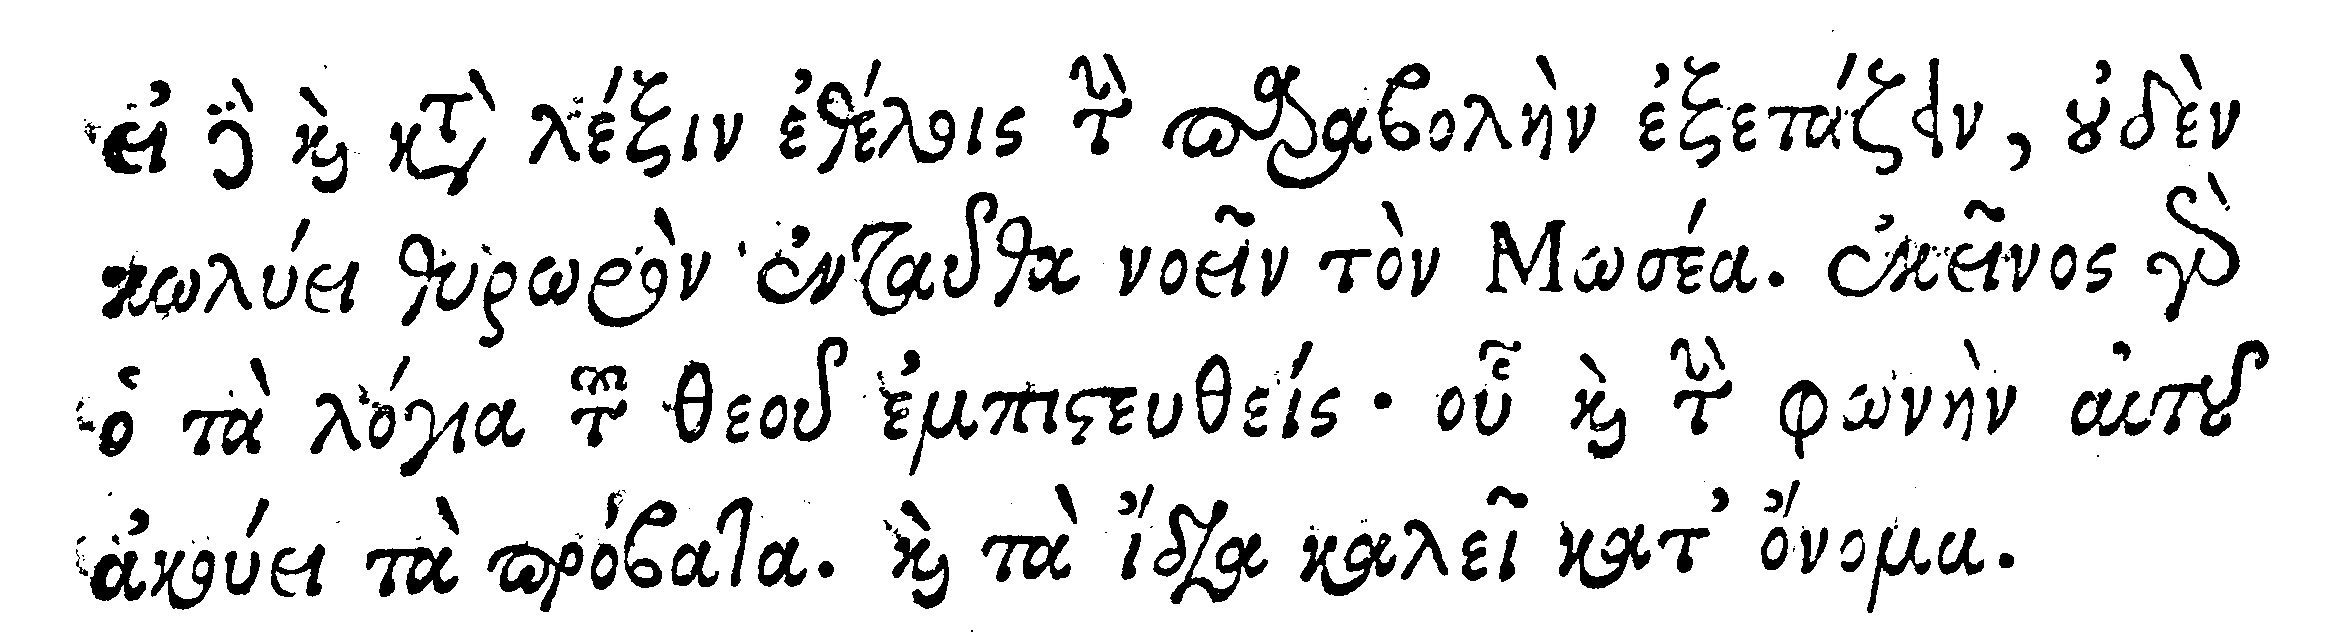 εἰ δὲ καὶ κατὰ λέξιν ἐθέλοις τὴν παραβολὴν ἐξετάζειν, οὐδὲν
κωλύει θυρωρὸν ἐνταῦθα νοεῖν τὸν Μωσέα. ἐκεῖνος γὰρ
ὁ τὰ λόγια τοῦ θεοῦ ἐμπιστευθείς · οὗ καὶ τὴν φωνὴν αὐτοῦ
ἀκούει τὰ πρόβατα. καὶ τὰ ἴδια καλεῖ κατ' ὄνομα.